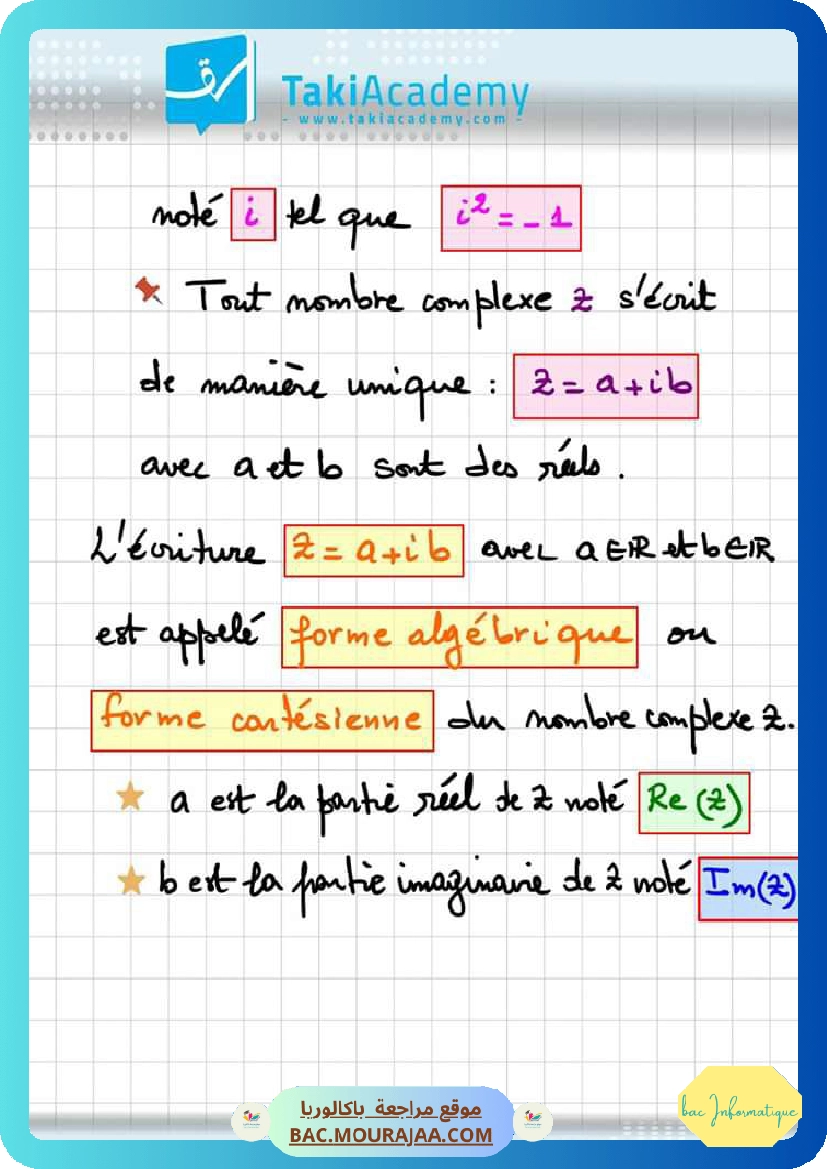 TakiAcademy
- www.takiacademy.com -
noté i tel que i² = - 1
Tout nombre complexe z s'écrit
de manière unique : z = a + ib
avec a et b sont des réels .
L'écriture z = a + ib avec a ∈ IR et b ∈ IR
est appelé forme algébrique ou
forme cartésienne du nombre complexe z.
a est la partie réel de z noté Re (z)
b est la partie imaginaire de z noté Im(z)
موقع مراجعة باكالوريا
BAC.MOURAJAA.COM
bac Informatique